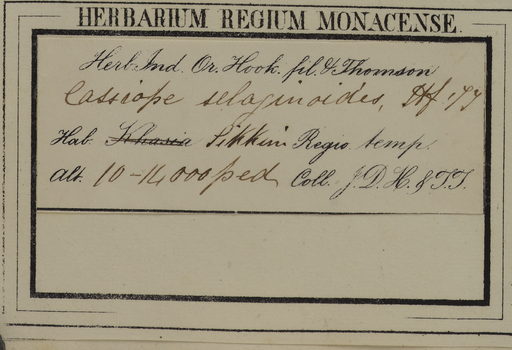 HERBARIUM REGIUM MONACENSE.
Herb. Ind. Or. Hook. fil. & Thomson
Cassiope selaginoides, Hf & TT
Hab. Khasia Sikkim Regio temp.
Alt. 10-14,000 ped Coll. J. D. H. & T. T.